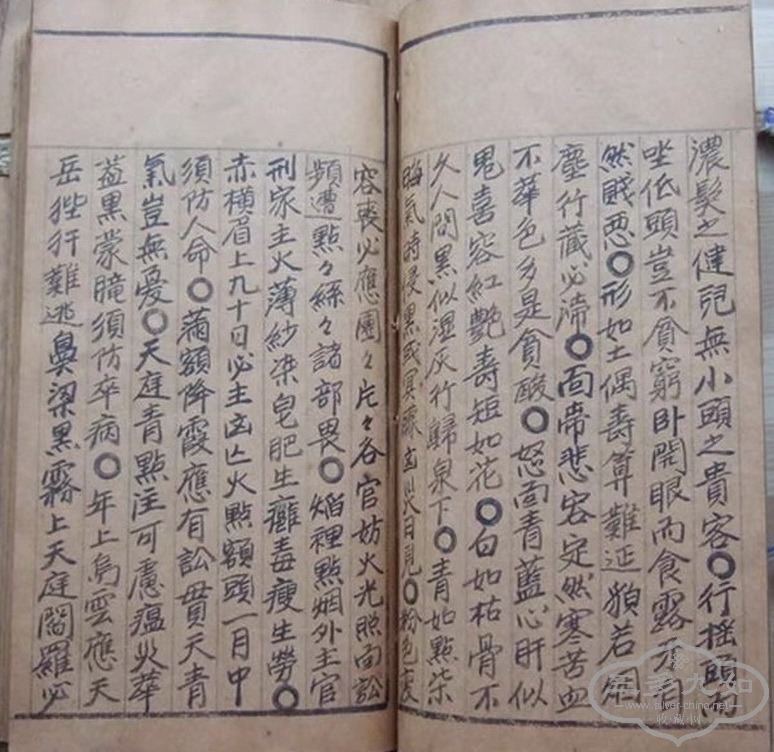 濃髮之健兒無小頭之貴客〇行搖頭
坐低頭豈不貧窮卧開眼而食露
然賤惡〇形如土偶壽算難延貌若烟
塵行藏必滯〇面帶悲容定然寒苦血
不華色多是貧酸〇怒面青藍心肝似
鬼喜容紅艷壽短如花〇白如枯骨不
久人間黑似湿灰行歸泉下〇青如點柒
晦氣時侵黑或冥朦凶災日見〇粉色
容喪必應團々片々各官妨火光照面訟
頻遭點々絲々諸部畏〇焰裡點烟外主官
刑家主火薄紗染皂肥生癰毒瘦生勞〇
赤橫眉上九十日必主凶亡火點額頭一月中
須防人命〇滿額降霞應有訟貫天青
氣豈無憂〇天庭青點注可慮瘟災華
盖黑蒙朣須防卒病〇年上烏雲應天
岳狴犴難逃鼻梁黑霧上天庭閻羅必
www.silver-china.net
收藏网